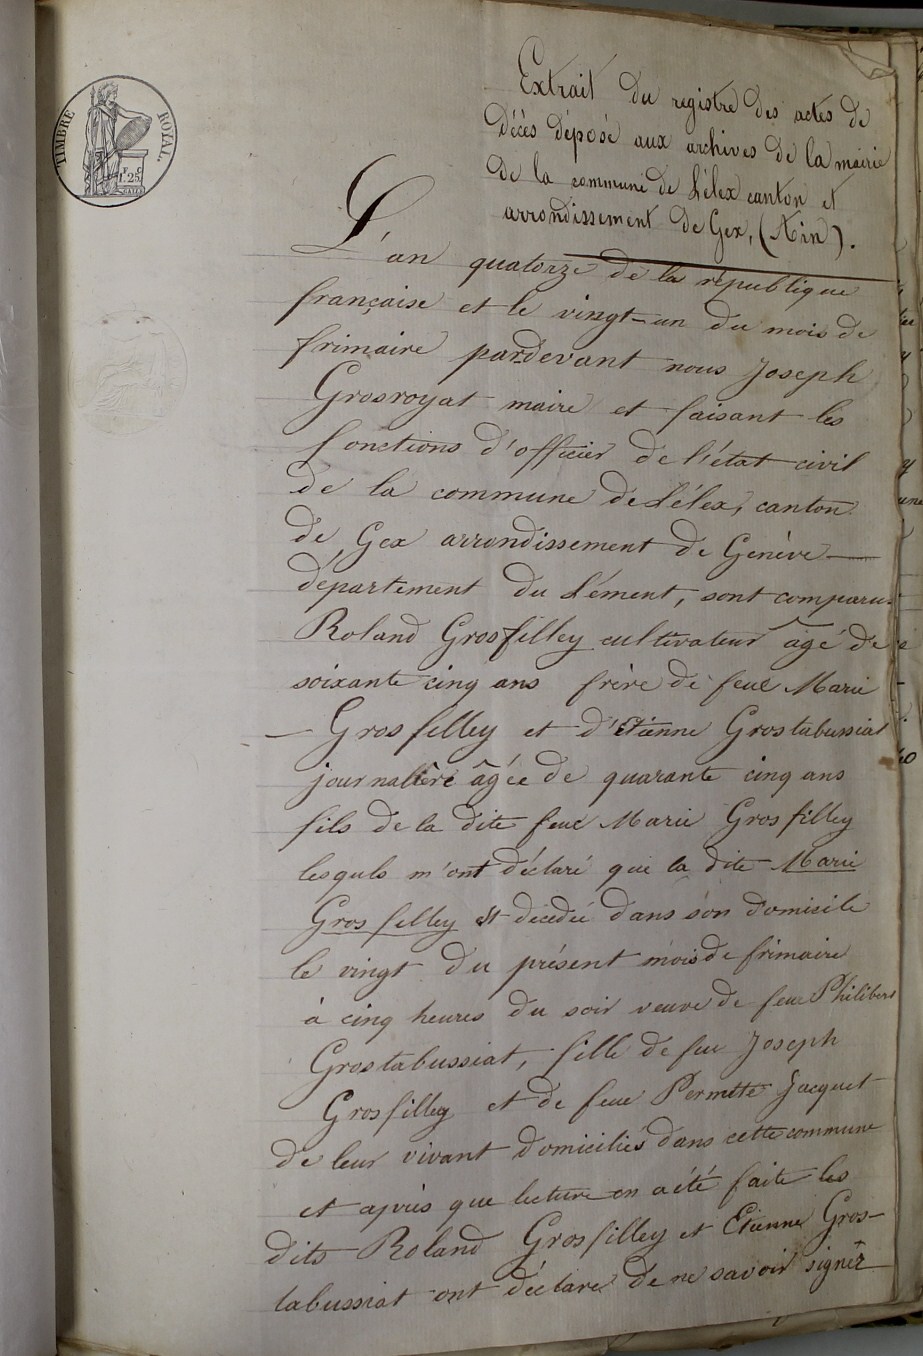 TIMBRE ROYAL.
1f. 25c.
Extrait du registre des actes de
décès déposé aux archives de la mairie
de la commune de Lélex canton et
arrondissement de Gex, (Ain).
L'an quatorze de la république
française et le vingt-un du mois de
frimaire pardevant nous Joseph
Grosroyat maire et faisant les
fonctions d'officier de l'état civil
de la commune de Lélex, canton
de Gex arrondissement de Genève
département du Lément, sont comparus
Roland Grosfilley cultivateur âgé de
soixante cinq ans frère de feue Marie
Grosfilley et d'Etienne Grostabussiat
journalière âgée de quarante cinq ans
fils de la dite feue Marie Grosfilley
lesquls m'ont déclaré que la dite Marie
Grosfilley est décédée dans son domicile
le vingt du présent mois de frimaire
à cinq heures du soir veuve de feu Philibert
Grostabussiat, fille de feu Joseph
Grosfilley et de feue Pernette Jacquet
de leur vivant domiciliés dans cette commune
et après que lecture en a été faite les
dits Roland Grosfilley et Etienne Gros-
tabussiat ont déclaré de ne savoir signer